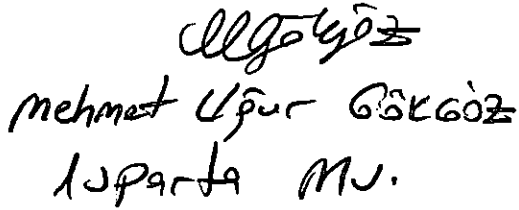 MGökgöz
Mehmet Uğur Gökgöz
Isparta Mv.